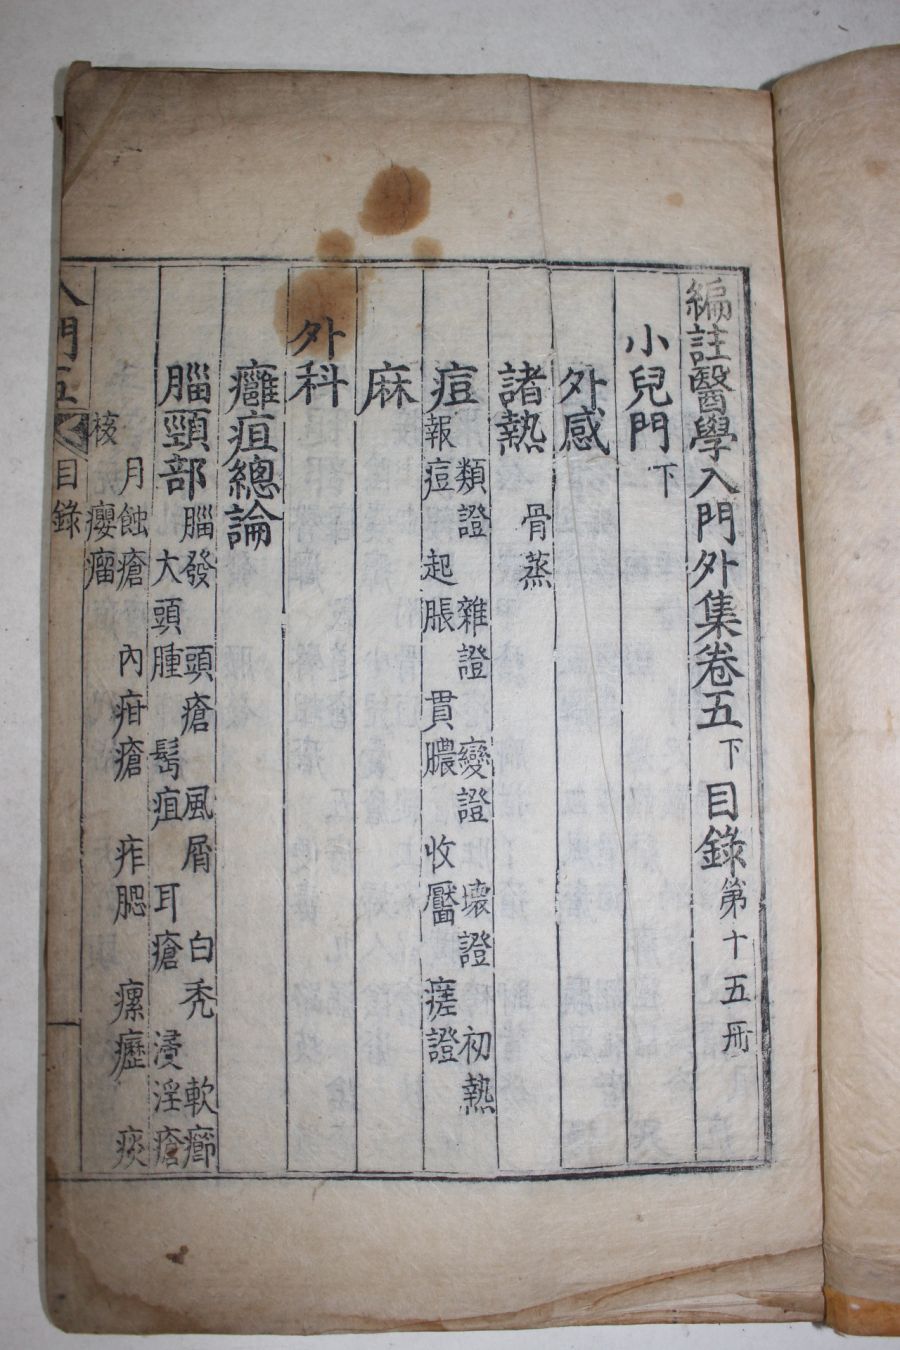 編註醫學入門外集卷五下目錄第十五冊
小兒門下
外感
諸熱 骨蒸
痘 類證 雜證 變證 壞證 初熱
報痘 起脹 貫膿 收靨 瘥證
麻
外科
癰疽總論
腦頸部 腦發 頭瘡 風屑 白禿 軟癤
大頭腫 髩疽 耳瘡 浸淫瘡
月蝕瘡 內疳瘡 痄腮 瘰癧 痰
核 癭瘤
入門五 目錄 一